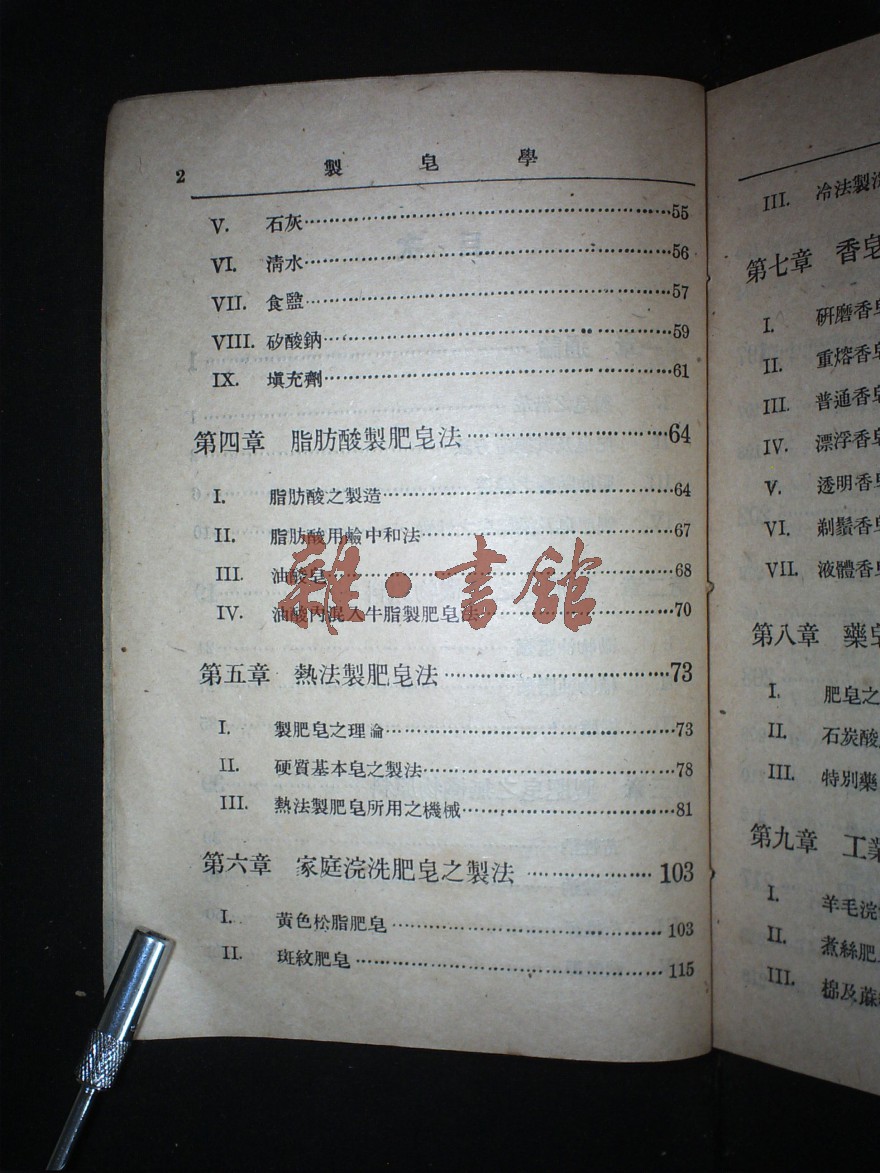 2 製皂學
V. 石灰………55
VI. 清水………56
VII. 食鹽………57
VIII. 矽酸鈉………59
IX. 塡充劑………61
第四章 脂肪酸製肥皂法………64
I. 脂肪酸之製造………64
II. 脂肪酸用鹼中和法………67
III. 油酸皂………68
IV. 油酸內混入牛脂製肥皂法………70
第五章 熱法製肥皂法………73
I. 製肥皂之理論………73
II. 硬質基本皂之製法………78
III. 熱法製肥皂所用之機械………81
第六章 家庭浣洗肥皂之製法………103
I. 黃色松脂肥皂………103
II. 斑紋肥皂………115
III. 冷法製
第七章 香皂
I. 研磨香皂
II. 重熔香皂
III. 普通香皂
IV. 漂浮香皂
V. 透明香皂
VI. 剃鬚香皂
VII. 液體香皂
第八章 藥皂
I. 肥皂之
II. 石炭酸
III. 特別藥
第九章 工業
I. 羊毛浣
II. 煮絲肥
III. 棉及蔴
雜·書館